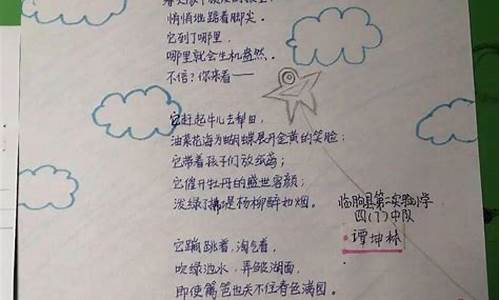 悄悄地踮着脚尖。
它到了哪里，
哪里就会生机盎然。
不信？你来看——
它赶起牛儿去犁田，
油菜花海为蝴蝶展开金黄的笑脸；
它带着孩子们放纸鸢；
它催开牡丹的盛世容颜；
泼绿了攜堤杨柳醉如烟。
它蹦跳着，淘气着，
吹绿池水，弄皱湖面，
即便篱笆也关不住春色满园。
临朐县第二实验小学
四（7）中队
谭坤林